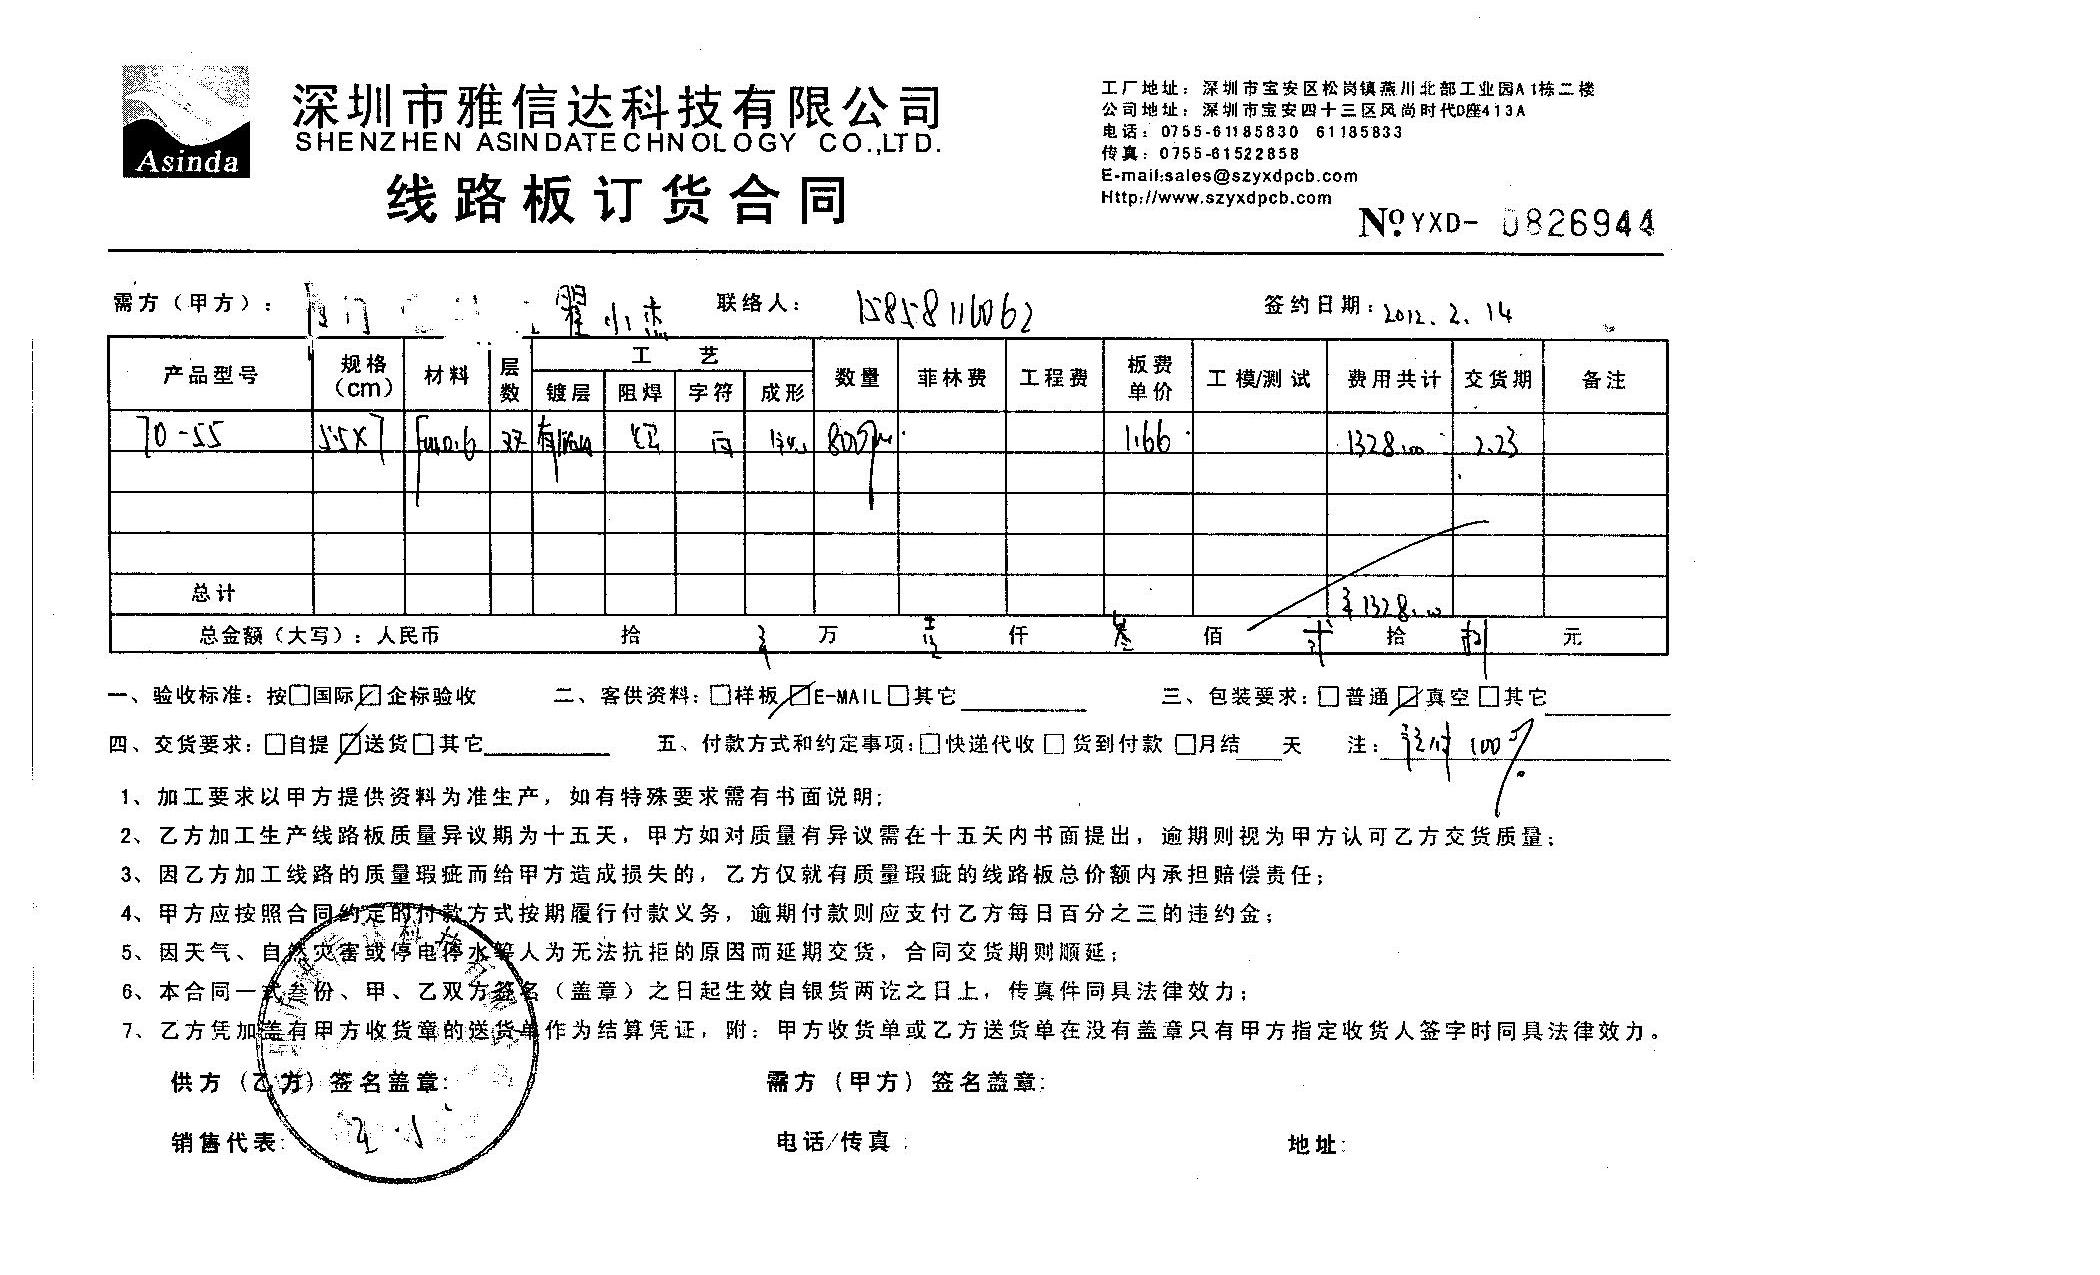 Asinda
深圳市雅信达科技有限公司
SHENZHEN ASINDATECHNOLOGY CO.,LTD.
线路板订货合同
工厂地址：深圳市宝安区松岗镇燕川北部工业园A1栋二楼
公司地址：深圳市宝安四十三区风尚时代D座413A
电话：0755-61185830 61185833
传真：0755-61522858
E-mail:sales@szyxdpcb.com
Http://www.szyxdpcb.com
№ YXD- 0826944
需方（甲方）： 门 翟小杰 联络人： 15858116062 签约日期：2012.2.14
产品型号 规格（cm） 材料 层数 工艺 数量 菲林费 工程费 板费单价 工模/测试 费用共计 交货期 备注
镀层 阻焊 字符 成形
70-55 5.5X7 白 800 1.66 1328.00 2.23
总计 ¥1328.00
总金额（大写）：人民币 拾 万 壹 仟 叁 佰 贰 拾 捌 元
一、验收标准：按□国际☑企标验收 二、客供资料：□样板☑E-MAIL□其它 三、包装要求：□普通☑真空□其它
四、交货要求：□自提☑送货□其它 五、付款方式和约定事项：□快递代收□货到付款□月结 天 注： 预付100%
1、加工要求以甲方提供资料为准生产，如有特殊要求需有书面说明；
2、乙方加工生产线路板质量异议期为十五天，甲方如对质量有异议需在十五天内书面提出，逾期则视为甲方认可乙方交货质量；
3、因乙方加工线路的质量瑕疵而给甲方造成损失的，乙方仅就有质量瑕疵的线路板总价额内承担赔偿责任；
4、甲方应按照合同约定的付款方式按期履行付款义务，逾期付款则应支付乙方每日百分之三的违约金；
5、因天气、自然灾害或停电停水等人为无法抗拒的原因而延期交货，合同交货期则顺延；
6、本合同一式叁份、甲、乙双方签名（盖章）之日起生效自银货两讫之日上，传真件同具法律效力；
7、乙方凭加盖有甲方收货章的送货单作为结算凭证，附：甲方收货单或乙方送货单在没有盖章只有甲方指定收货人签字时同具法律效力。
供方（乙方）签名盖章： 需方（甲方）签名盖章：
销售代表： 电话/传真： 地址：